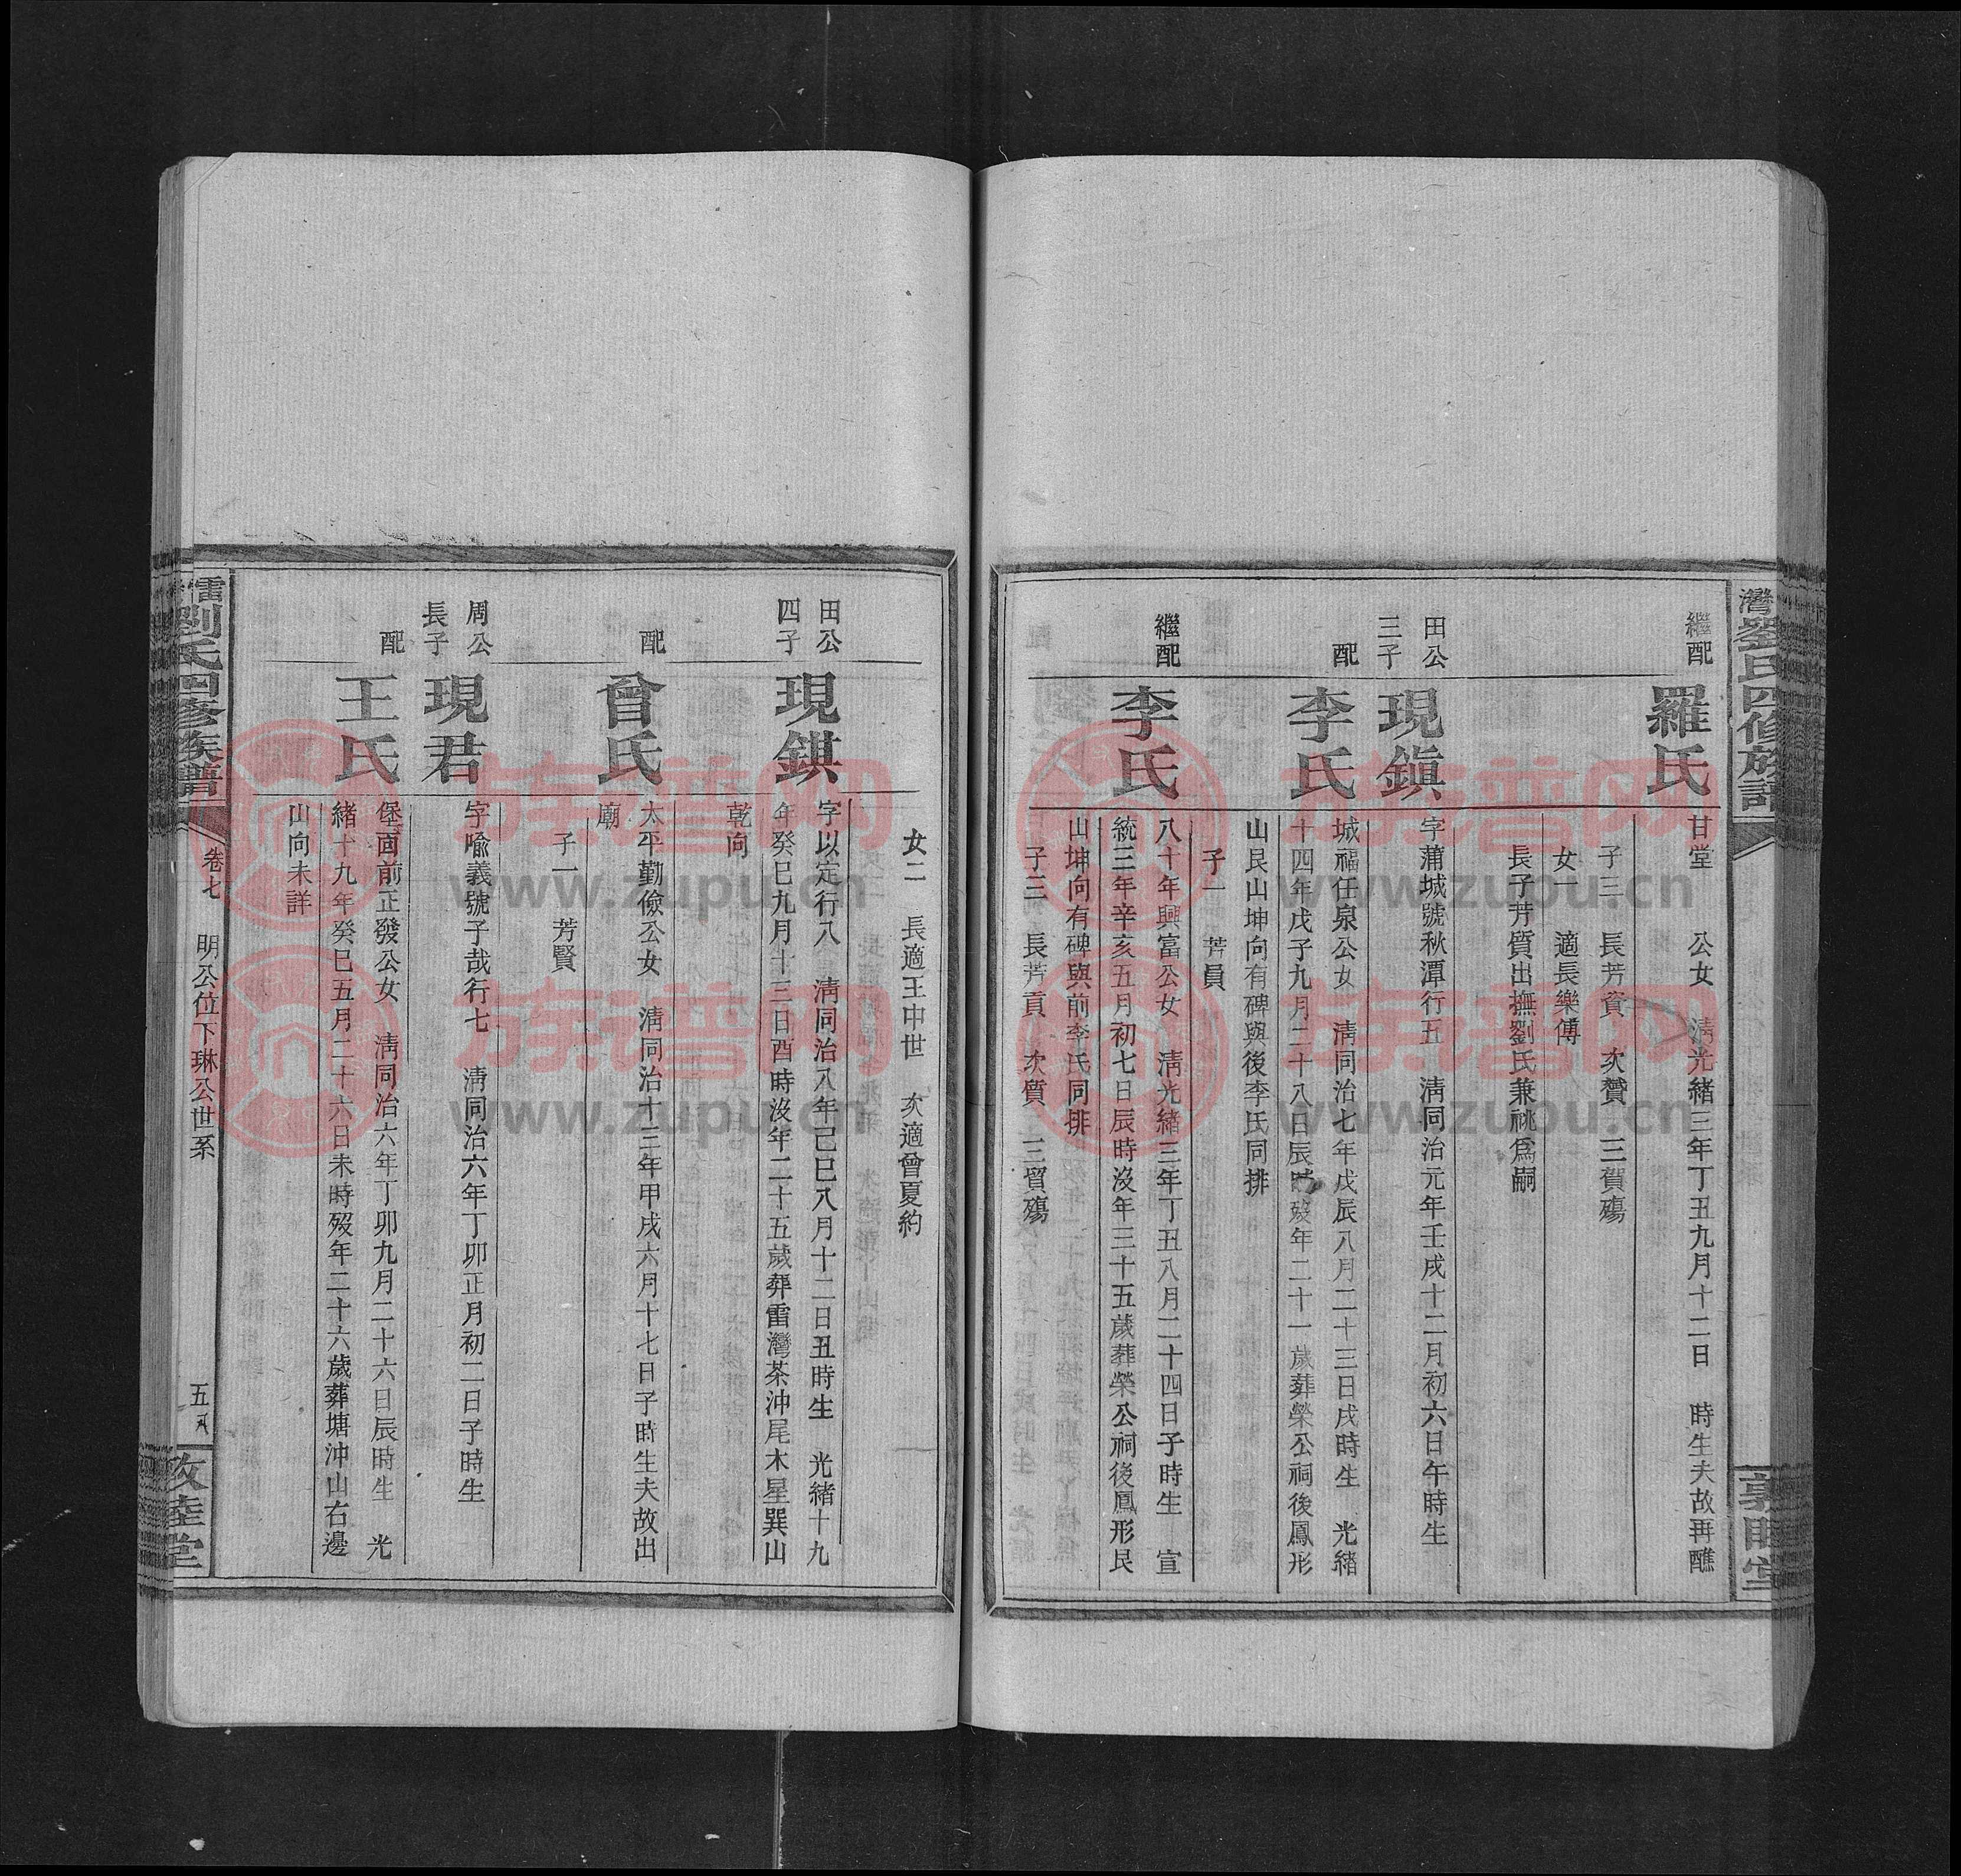 灣劉氏四修族譜
敦睦堂
繼配
羅氏
甘堂 公女 淸光緒三年丁丑九月十二日 時生夫故再醮
子三 長芳資 次贊 三賀殤
女一 適長樂傅
長子芳質出撫劉氏兼祧爲嗣
田公
三子
現鎭
字蒲城號秋潭行五 淸同治元年壬戌十二月初六日午時生
配
李氏
城福任泉公女 淸同治七年戊辰八月二十三日戌時生 光緒
十四年戊子九月二十八日辰時歿年二十一歲葬榮公祠後鳳形
山艮山坤向有碑與後李氏同排
子一 芳員
繼配
李氏
八十年興富公女 淸光緒三年丁丑八月二十四日子時生 宣
統三年辛亥五月初七日辰時沒年三十五歲葬榮公祠後鳳形艮
山坤向有碑與前李氏同排
子三 長芳貢 次質 三貿殤
女二 長適王中世 次適曾夏約
田公
四子
現錤
字以定行八 淸同治八年己巳八月十二日丑時生 光緒十九
年癸巳九月十三日酉時沒年二十五歲葬雷灣茶沖尾木星巽山
乾向
配
曾氏
太平勤儉公女 淸同治十三年甲戌六月十七日子時生夫故出
廟
子一 芳賢
周公
長子
現君
字喩義號子哉行七 淸同治六年丁卯正月初二日子時生
配
王氏
堡面前正發公女 淸同治六年丁卯九月二十六日辰時生 光
緒十九年癸巳五月二十六日未時歿年二十六歲葬塘沖山右邊
山向未詳
劉氏四修族譜
卷七
明公位下琳公世系
五八
敦睦堂
族谱网
www.zupu.cn
族谱网
www.zupu.cn
族谱网
www.zupu.cn
族谱网
www.zupu.cn